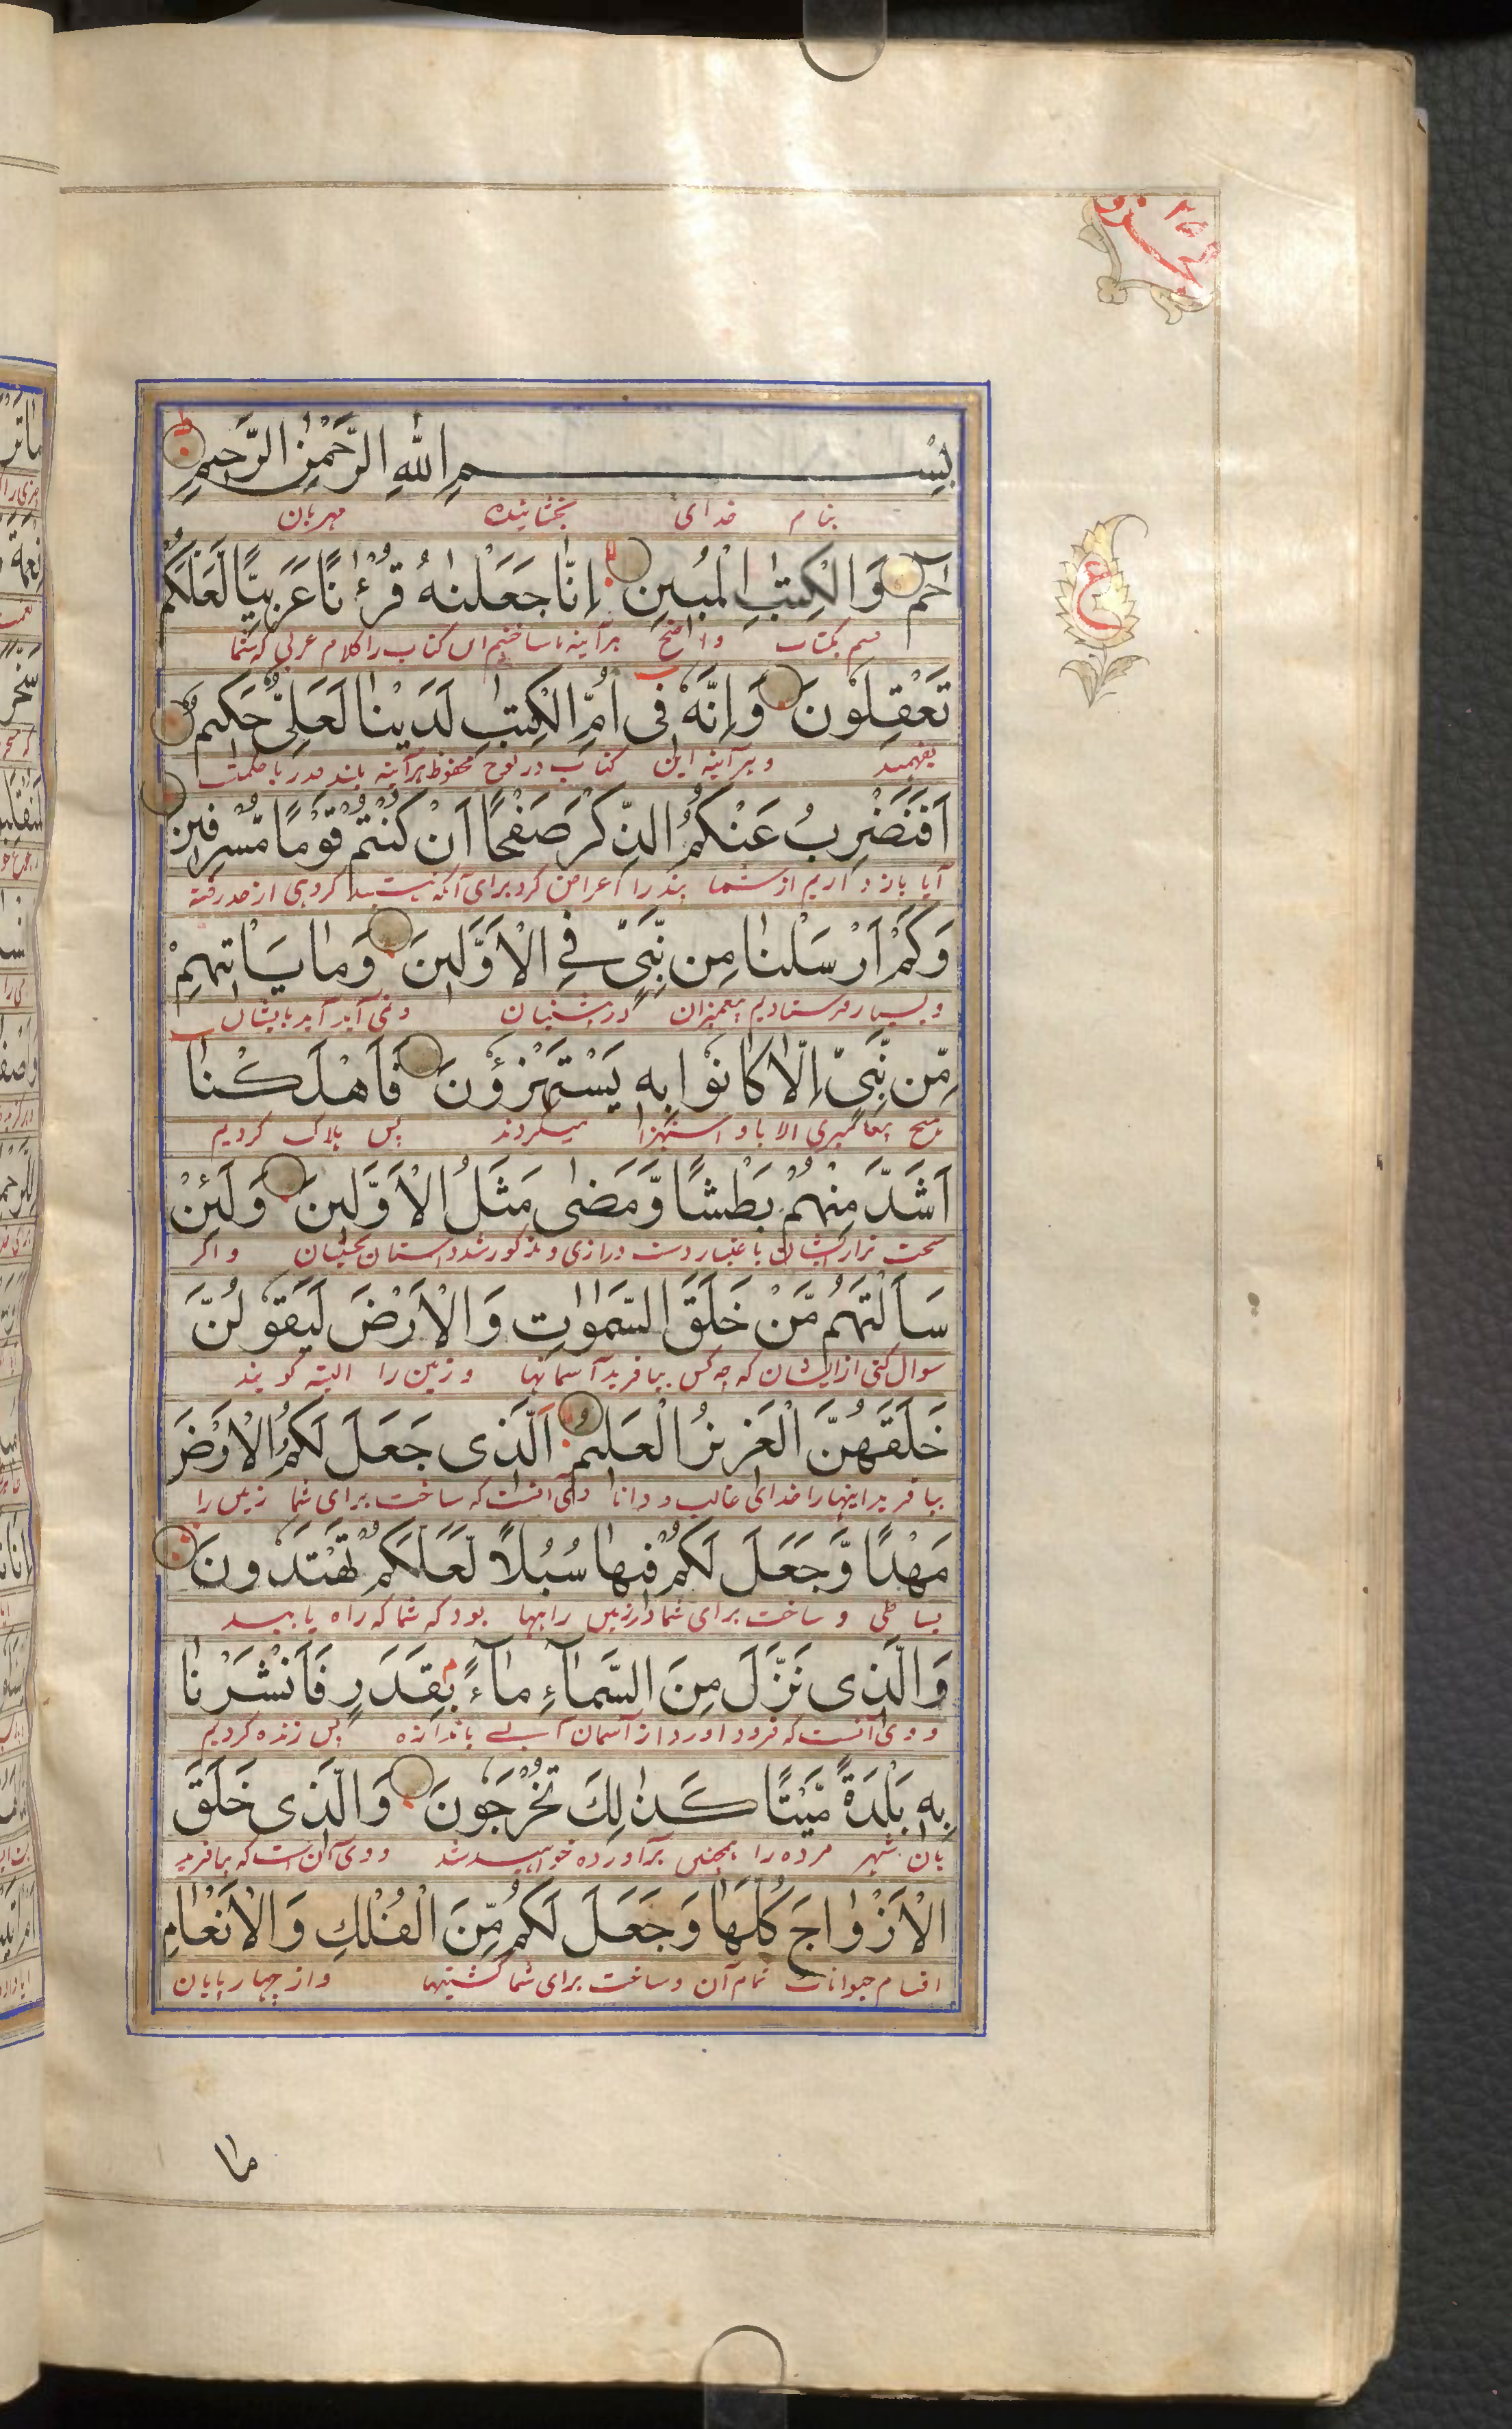 بِسْمِ اللّٰهِ الرَّحْمٰنِ الرَّحِيمِ
بنام خدای بخشاینده مهربان
حٰمٓ وَالْكِتٰبِ الْمُبِينِ اِنَّا جَعَلْنٰهُ قُرْءٰنًا عَرَبِيًّا لَّعَلَّكُمْ
قسم بکتاب واضح هرآینه ما ساختیم این کتاب را کلام عربی که شما
تَعْقِلُونَ وَاِنَّهٗ فِى اُمِّ الْكِتٰبِ لَدَيْنٰا لَعَلِىٌّ حَكِيمٌ
بفهمید و هرآینه این کتاب در لوح محفوظ هرآینه بلند قدر با حکمت
اَفَنَضْرِبُ عَنْكُمُ الذِّكْرَ صَفْحًا اَنْ كُنْتُمْ قَوْمًا مُّسْرِفِينَ
آیا باز داریم از شما پند را اعراض کرده برای آنکه گروهی از حد رفته
وَكَمْ اَرْسَلْنٰا مِن نَّبِىٍّ فِى الْاَوَّلِينَ وَمٰا يَأْتِيهِمْ
و بسیار فرستادیم پیغمبران در پیشینیان و نمی آید بایشان
مِّن نَّبِىٍّ اِلَّا كٰانُوا بِهٖ يَسْتَهْزِؤُنَ فَاَهْلَكْنٰا
هیچ پیغامبری الا باو استهزا میکردند پس هلاک کردیم
اَشَدَّ مِنْهُمْ بَطْشًا وَّمَضٰى مَثَلُ الْاَوَّلِينَ وَلَئِنْ
سخت تر از ایشان باعتبار دست درازی و مذکور شد داستان و اگر
سَاَلْتَهُمْ مَّنْ خَلَقَ السَّمٰوٰتِ وَالْاَرْضَ لَيَقُولُنَّ
سوال کنی از ایشان که چه کس بیافرید آسمانها و زمین را البته گویند
خَلَقَهُنَّ الْعَزِيزُ الْعَلِيمُ اَلَّذِى جَعَلَ لَكُمُ الْاَرْضَ
بیافرید اینها را خدای غالب و دانا وی آنست که ساخت برای شما زمین را
مَهْدًا وَّجَعَلَ لَكُمْ فِيهٰا سُبُلًا لَّعَلَّكُمْ تَهْتَدُونَ
بساطی و ساخت برای شما در زمین راهها بود که شما که راه یابید
وَالَّذِى نَزَّلَ مِنَ السَّمٰآءِ مٰآءً بِقَدَرٍ فَاَنْشَرْنٰا
و وی آنست که فرود آورد از آسمان آبی باندازه پس زنده کردیم
بِهٖ بَلْدَةً مَّيْتًا كَذٰلِكَ تُخْرَجُونَ وَالَّذِى خَلَقَ
بآن شهر مرده را همچنین برآورده خواهید شد و وی آن است که بیافرید
الْاَزْوٰاجَ كُلَّهٰا وَجَعَلَ لَكُمْ مِّنَ الْفُلْكِ وَالْاَنْعٰامِ
اقسام حیوانات تمام آن و ساخت برای شما کشتیها و از چهارپایان
مٰا